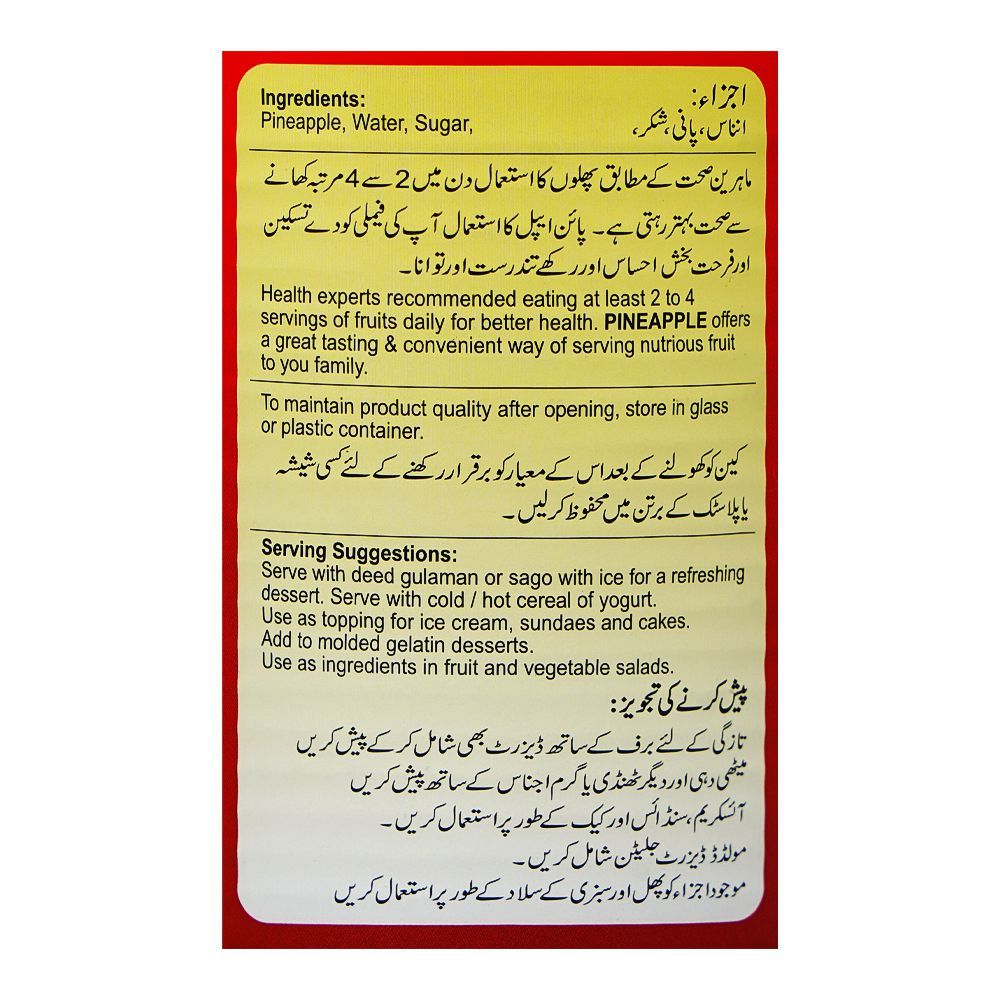 Ingredients:
Pineapple, Water, Sugar,
اجزاء:
انناس، پانی، شکر،
ماہرین صحت کے مطابق پھلوں کا استعمال دن میں 2 سے 4 مرتبہ کھانے
سے صحت بہتر رہتی ہے۔ پائن ایپل کا استعمال آپ کی فیملی کو دے تسکین
اور فرحت بخش احساس اور رکھے تندرست اور توانا۔
Health experts recommended eating at least 2 to 4
servings of fruits daily for better health. PINEAPPLE offers
a great tasting & convenient way of serving nutrious fruit
to you family.
To maintain product quality after opening, store in glass
or plastic container.
کین کو کھولنے کے بعد اس کے معیار کو برقرار رکھنے کے لئے کسی شیشہ
یا پلاسٹک کے برتن میں محفوظ کر لیں۔
Serving Suggestions:
Serve with deed gulaman or sago with ice for a refreshing
dessert. Serve with cold / hot cereal of yogurt.
Use as topping for ice cream, sundaes and cakes.
Add to molded gelatin desserts.
Use as ingredients in fruit and vegetable salads.
پیش کرنے کی تجویز:
تازگی کے لئے برف کے ساتھ ڈیزرٹ بھی شامل کر کے پیش کریں
میٹھی دہی اور دیگر ٹھنڈی یا گرم اجناس کے ساتھ پیش کریں
آئسکریم، سنڈائس اور کیک کے طور پر استعمال کریں۔
مولڈڈ ڈیزرٹ جلیٹن شامل کریں۔
موجود اجزاء کو پھل اور سبزی کے سلاد کے طور پر استعمال کریں